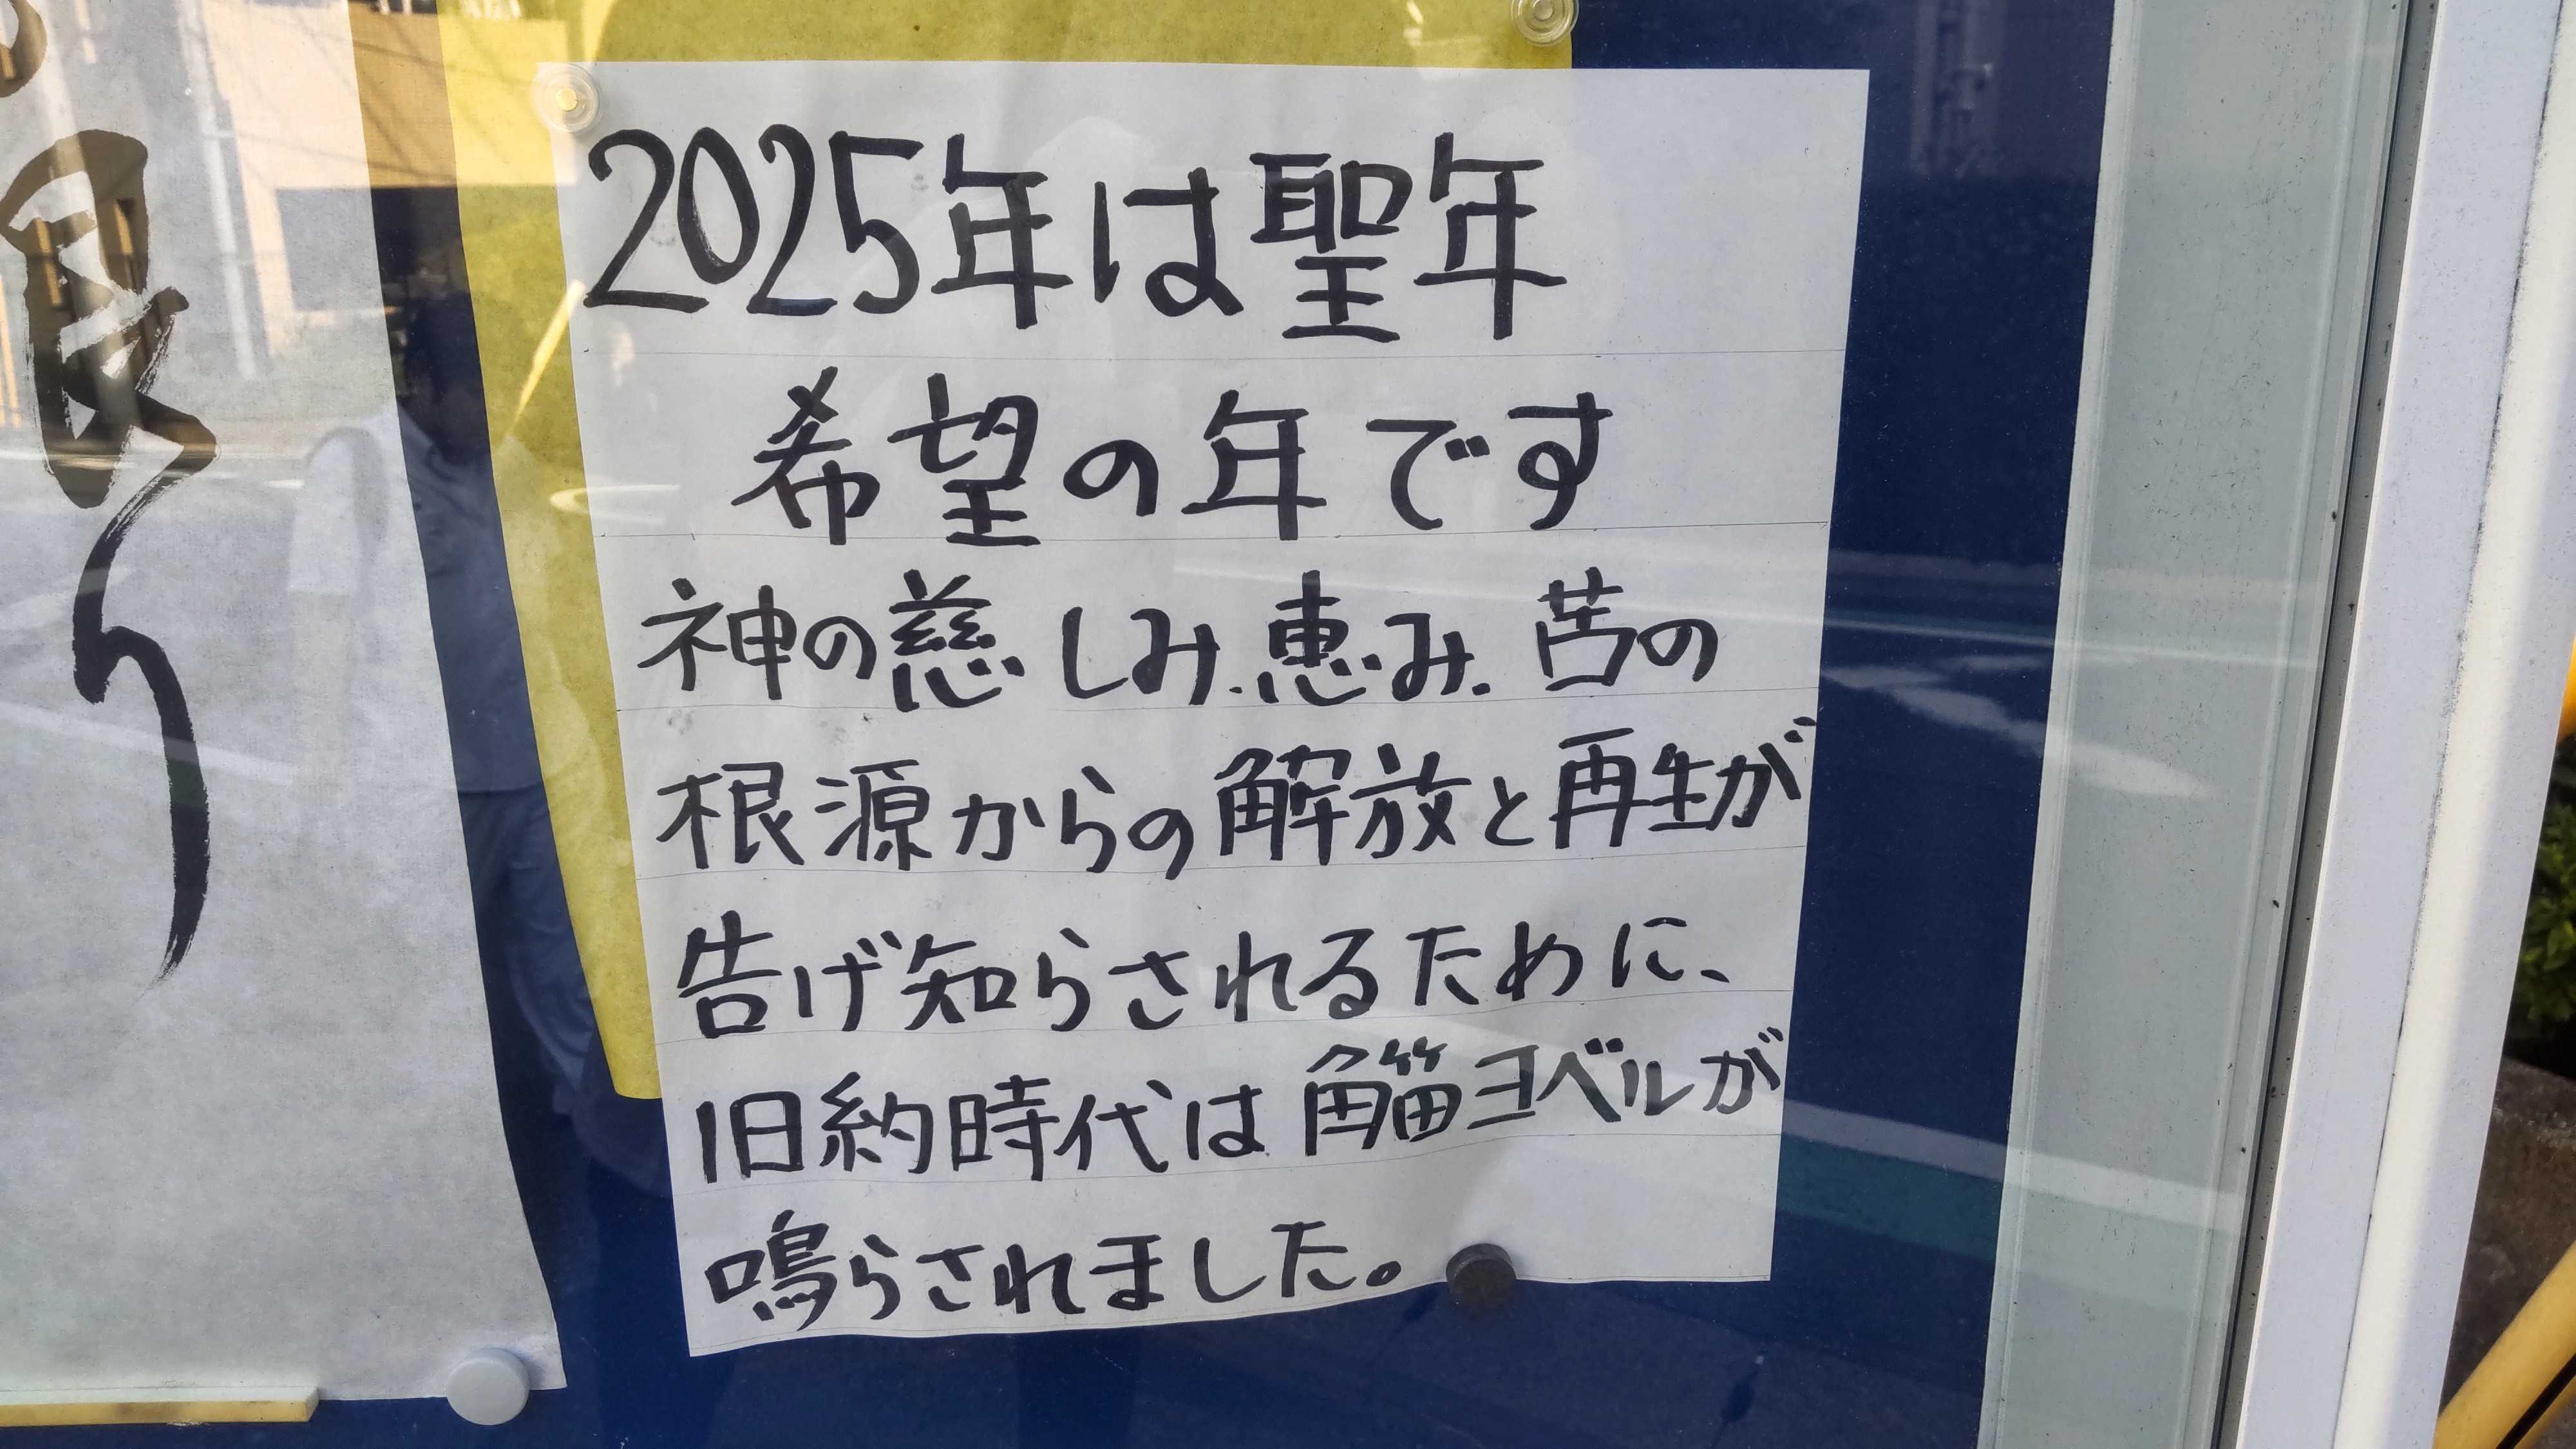 2025年は聖年
希望の年です
神の慈しみ.恵み.苦の
根源からの解放と再生が
告げ知らされるために、
旧約時代は角笛ヨベルが
鳴らされました。